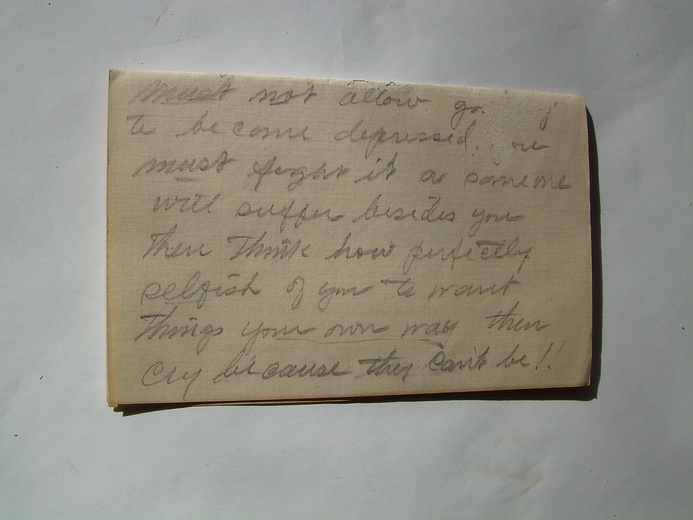 must not allow
to become depressed.
must fight it or someone
will suffer besides you
then think how perfectly
selfish of you to want
things your own way then
cry because they can't be!!